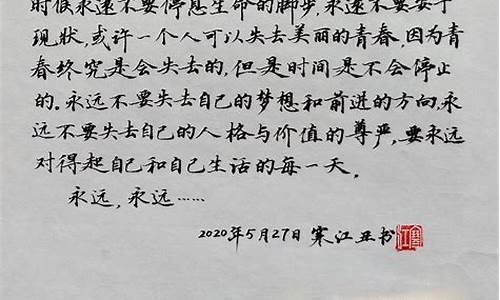 时候永远不要停息生命的脚步,永远不要安于
现状,或许一个人可以失去美丽的青春,因为青
春终究是会失去的,但是时间是不会停止
的。永远不要失去自己的梦想和前进的方向,永
远不要失去自己的人格与价值的尊严,要永远
对得起自己和自己生活的每一天。
永远,永远……
2020年5月27日 寒江丑书
寒江